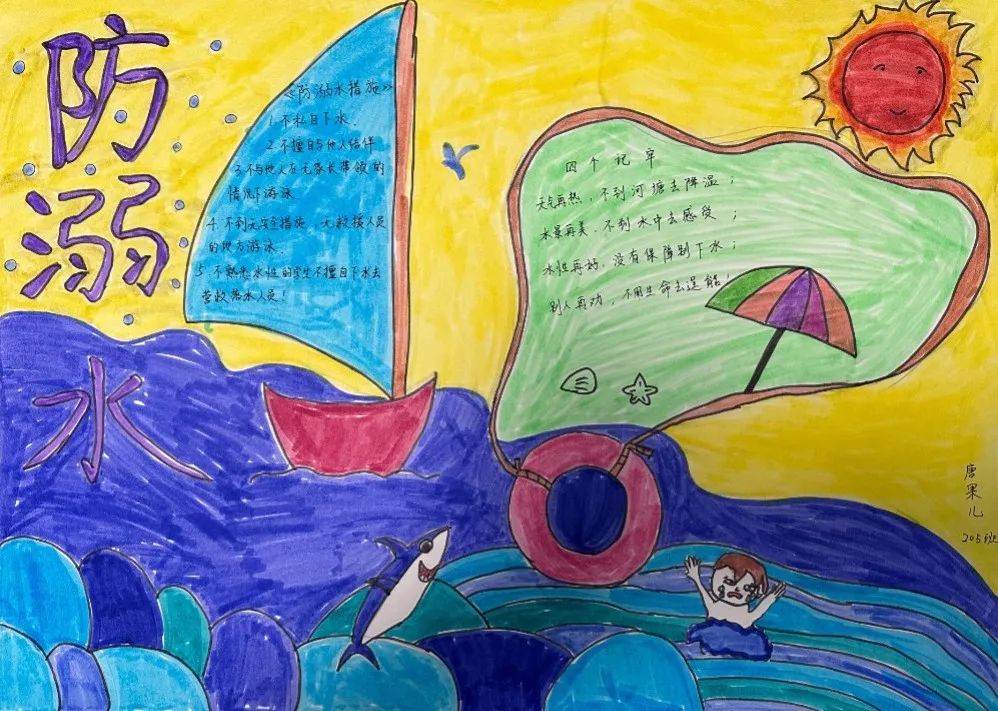 防溺水
《防溺水措施》
1.不私自下水.
2.不擅自与他人结伴
3.不与他人在无家长带领的
情况下游泳
4.不到无安全措施、无救援人员
的地方游泳.
5.不熟悉水性的学生不擅自下水去
营救落水人员!
四个记牢
天气再热,不到河塘去降温;
水景再美,不到水中去感受;
水性再好,没有保障别下水;
别人再劝,不用生命去逞能!
唐果儿
205班